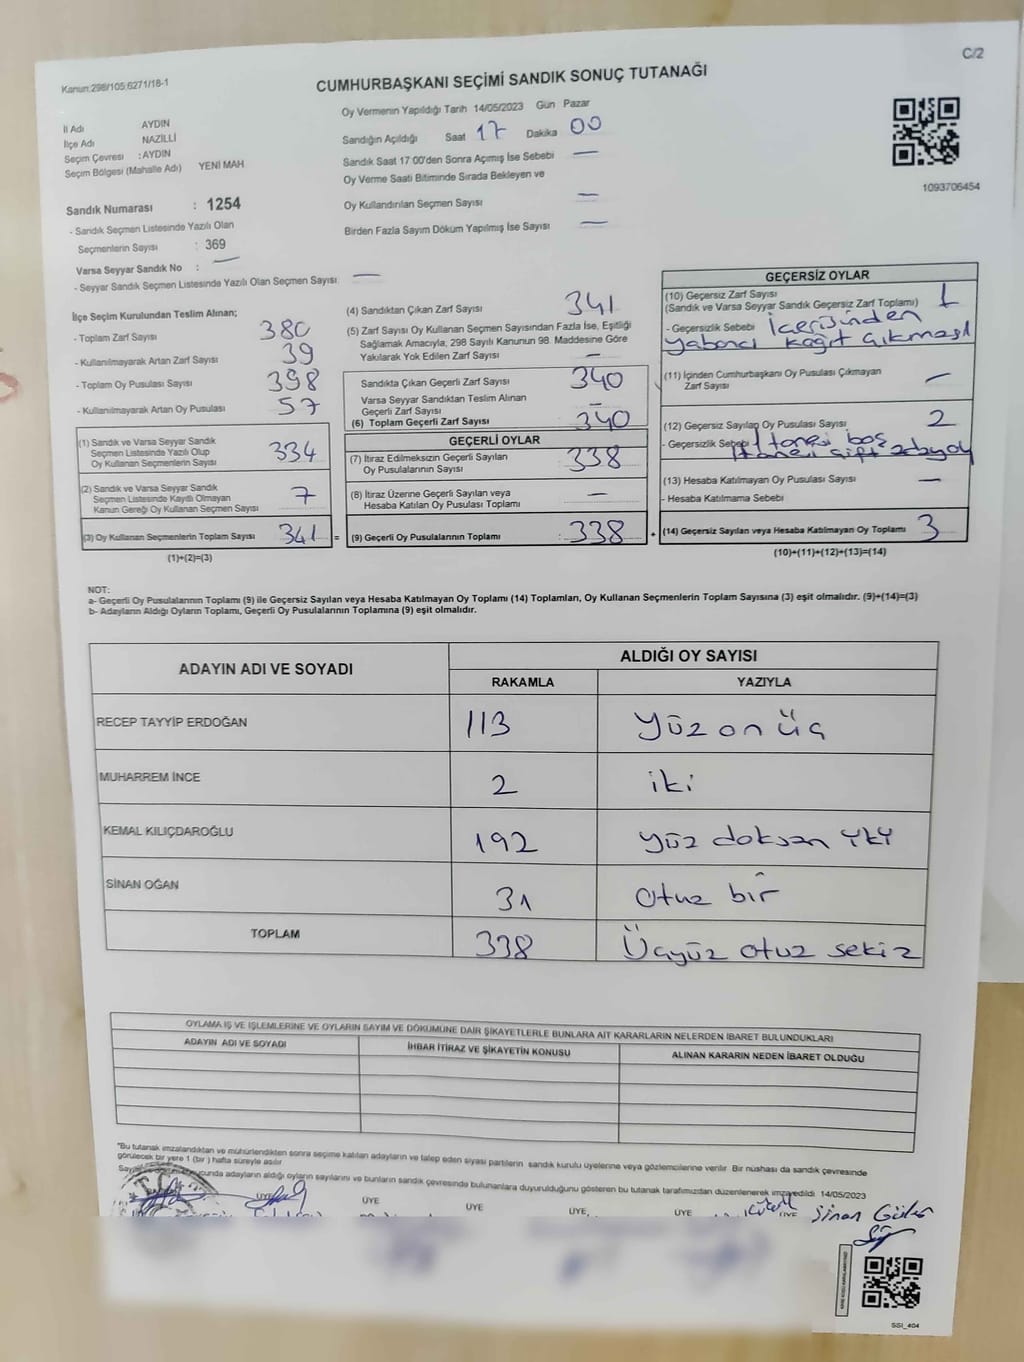 C/2
Kanun:298/105;6271/18-1
CUMHURBAŞKANI SEÇİMİ SANDIK SONUÇ TUTANAĞI
İl Adı AYDIN
İlçe Adı NAZİLLİ
Seçim Çevresi : AYDIN
Seçim Bölgesi (Mahalle Adı) YENİ MAH
Sandık Numarası : 1254
- Sandık Seçmen Listesinde Yazılı Olan
Seçmenlerin Sayısı : 369
Varsa Seyyar Sandık No : —
- Seyyar Sandık Seçmen Listesinde Yazılı Olan Seçmen Sayısı: —
Oy Vermenin Yapıldığı Tarih 14/05/2023 Gün Pazar
Sandığın Açıldığı Saat 17 Dakika 00
Sandık Saat 17 00'den Sonra Açımış İse Sebebi —
Oy Verme Saati Bitiminde Sırada Bekleyen ve
Oy Kullandırılan Seçmen Sayısı —
Birden Fazla Sayım Döküm Yapılmış İse Sayısı —
1093706454
İlçe Seçim Kurulundan Teslim Alınan;
- Toplam Zarf Sayısı 380
- Kullanılmayarak Artan Zarf Sayısı 39
- Toplam Oy Pusulası Sayısı 398
- Kullanılmayarak Artan Oy Pusulası 57
(1) Sandık ve Varsa Seyyar Sandık
Seçmen Listesinde Yazılı Olup
Oy Kullanan Seçmenlerin Sayısı 334
(2) Sandık ve Varsa Seyyar Sandık
Seçmen Listesinde Kayıtlı Olmayan
Kanun Gereği Oy Kullanan Seçmen Sayısı 7
(3) Oy Kullanan Seçmenlerin Toplam Sayısı 341 =
(1)+(2)=(3)
(4) Sandıktan Çıkan Zarf Sayısı 341
(5) Zarf Sayısı Oy Kullanan Seçmen Sayısından Fazla İse, Eşitliği
Sağlamak Amacıyla, 298 Sayılı Kanunun 98. Maddesine Göre
Yakılarak Yok Edilen Zarf Sayısı —
Sandıkta Çıkan Geçerli Zarf Sayısı 340
Varsa Seyyar Sandıktan Teslim Alınan
Geçerli Zarf Sayısı —
(6) Toplam Geçerli Zarf Sayısı 340
GEÇERLİ OYLAR
(7) İtiraz Edilmeksizin Geçerli Sayılan
Oy Pusulalarının Sayısı 338
(8) İtiraz Üzerine Geçerli Sayılan veya
Hesaba Katılan Oy Pusulası Toplamı —
(9) Geçerli Oy Pusulalarının Toplamı : 338 +
GEÇERSİZ OYLAR
(10) Geçersiz Zarf Sayısı
(Sandık ve Varsa Seyyar Sandık Geçersiz Zarf Toplamı) 1
- Geçersizlik Sebebi İçerisinden
yabancı kağıt çıkması
(11) İçinden Cumhurbaşkanı Oy Pusulası Çıkmayan
Zarf Sayısı —
(12) Geçersiz Sayılan Oy Pusulası Sayısı 2
- Geçersizlik Sebebi 1 tanesi boş
1 tanesi çift
(13) Hesaba Katılmayan Oy Pusulası Sayısı —
- Hesaba Katılmama Sebebi
(14) Geçersiz Sayılan veya Hesaba Katılmayan Oy Toplamı 3
(10)+(11)+(12)+(13)=(14)
NOT:
a- Geçerli Oy Pusulalarının Toplamı (9) ile Geçersiz Sayılan veya Hesaba Katılmayan Oy Toplamı (14) Toplamları, Oy Kullanan Seçmenlerin Toplam Sayısına (3) eşit olmalıdır. (9)+(14)=(3)
b- Adayların Aldığı Oyların Toplamı, Geçerli Oy Pusulalarının Toplamına (9) eşit olmalıdır.
ADAYIN ADI VE SOYADI ALDIĞI OY SAYISI
RAKAMLA YAZIYLA
RECEP TAYYİP ERDOĞAN 113 Yüz on üç
MUHARREM İNCE 2 iki
KEMAL KILIÇDAROĞLU 192 yüz doksan iki
SİNAN OĞAN 31 Otuz bir
TOPLAM 338 Üçyüz otuz sekiz
OYLAMA İŞ VE İŞLEMLERİNE VE OYLARIN SAYIM VE DÖKÜMÜNE DAİR ŞİKAYETLERLE BUNLARA AİT KARARLARIN NELERDEN İBARET BULUNDUKLARI
ADAYIN ADI VE SOYADI İHBAR İTİRAZ VE ŞİKAYETİN KONUSU ALINAN KARARIN NEDEN İBARET OLDUĞU
*Bu tutanak imzalandıktan ve mühürlendikten sonra seçime katılan adayların ve talep eden siyasi partilerin sandık kurulu üyelerine veya gözlemcilerine verilir. Bir nüshası da sandık çevresinde
görülecek bir yere 1 (bir ) hafta süreyle asılır
adayların aldığı oyların sayılarını ve bunların sandık çevresinde bulunanlara duyurulduğunu gösteren bu tutanak tarafımızdan düzenlenerek imzalandı 14/05/2023
ÜYE ÜYE ÜYE ÜYE ÜYE ÜYE Sinan
SSI_404